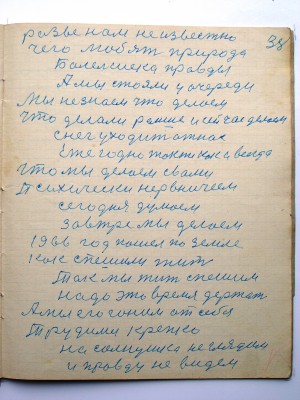 разве нам неизвестно 38
чего любят природа
Болелшека правды
А мы стояли у очереди
Мы незнаем что делаем
что делали раньше и сейчас делаем
снег уходит от нас
Ежегодно так и всегда
что мы делаем свами
Психически нервничеем
сегодня думаем
завтре мы делаем
1966 год пошел по земле
как спешили жит
Так мы жит спешим
надо это время держат
А мы его гоним от себя
Трудими крепко
на солнушка неглядим
и правду не видем